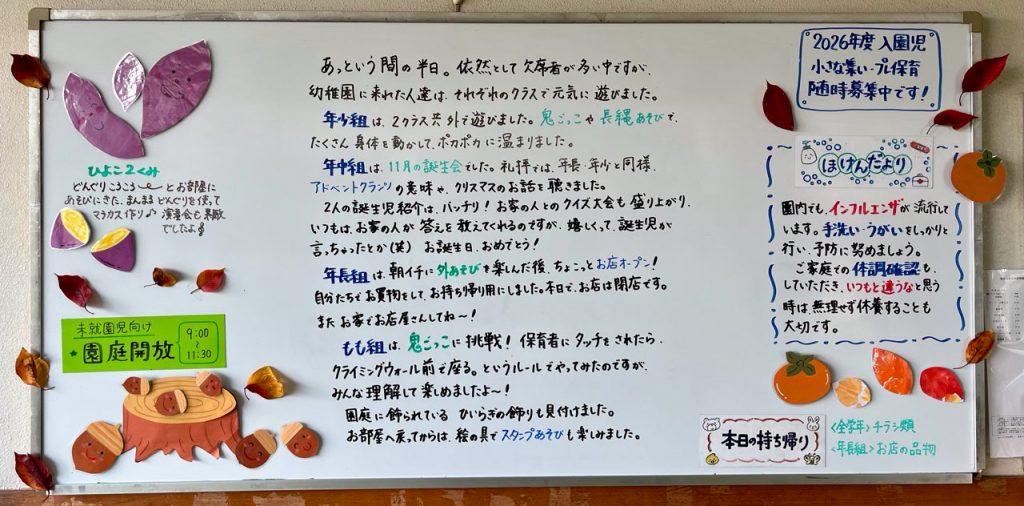 ひよこ2くみ
どんぐりころころ と お部屋に
あそびにきた、まんまる どんぐりを使って
マラカス作り♪ 演奏会も素敵
でしたよ
未就園児向け
園庭開放
9:00
~
11:30
あっという間の半日。依然として欠席者が多い中ですが、
幼稚園に来れた人達は、それぞれのクラスで元気に遊びました。
年少組は、2クラス共外で遊びました。鬼ごっこや長縄あそびで、
たくさん身体を動かして、ポカポカに温まりました。
年中組は、11月の誕生会でした。礼拝では、年長・年少と同様、
アドベントクランツの意味や、クリスマスのお話を聴きました。
2人の誕生児紹介は、バッチリ! お家の人とのクイズ大会も盛り上がり、
いつもは、お家の人が答えを教えてくれるのですが、嬉しくって、誕生児が
言っちゃったとか(笑) お誕生日、おめでとう!
年長組は、朝イチに外あそびを楽しんだ後、ちょこっとお店オープン!
自分たちでお買物をして、お持ち帰り用にしました。本日で、お店は閉店です。
またお家でお店屋さんしてね~!
もも組は、鬼ごっこに挑戦! 保育者にタッチをされたら、
クライミングウォール前で座る。というルールでやってみたのですが、
みんな理解して楽しめましたよ~!
園庭に飾られている ひいらぎの飾りも見付けました。
お部屋へ戻ってからは、絵の具でスタンプあそびも楽しみました。
2026年度 入園児
小さな集い・プレ保育
随時募集中です!
ほけんだより
園内でも、インフルエンザが流行して
います。手洗い・うがいをしっかりと
行い、予防に努めましょう。
ご家庭での体調確認も、
していただき、いつもと違うなと思う
時は、無理せず休養することも
大切です。
本日の持ち帰り
<全学年>チラシ類
<年長組>お店の品物